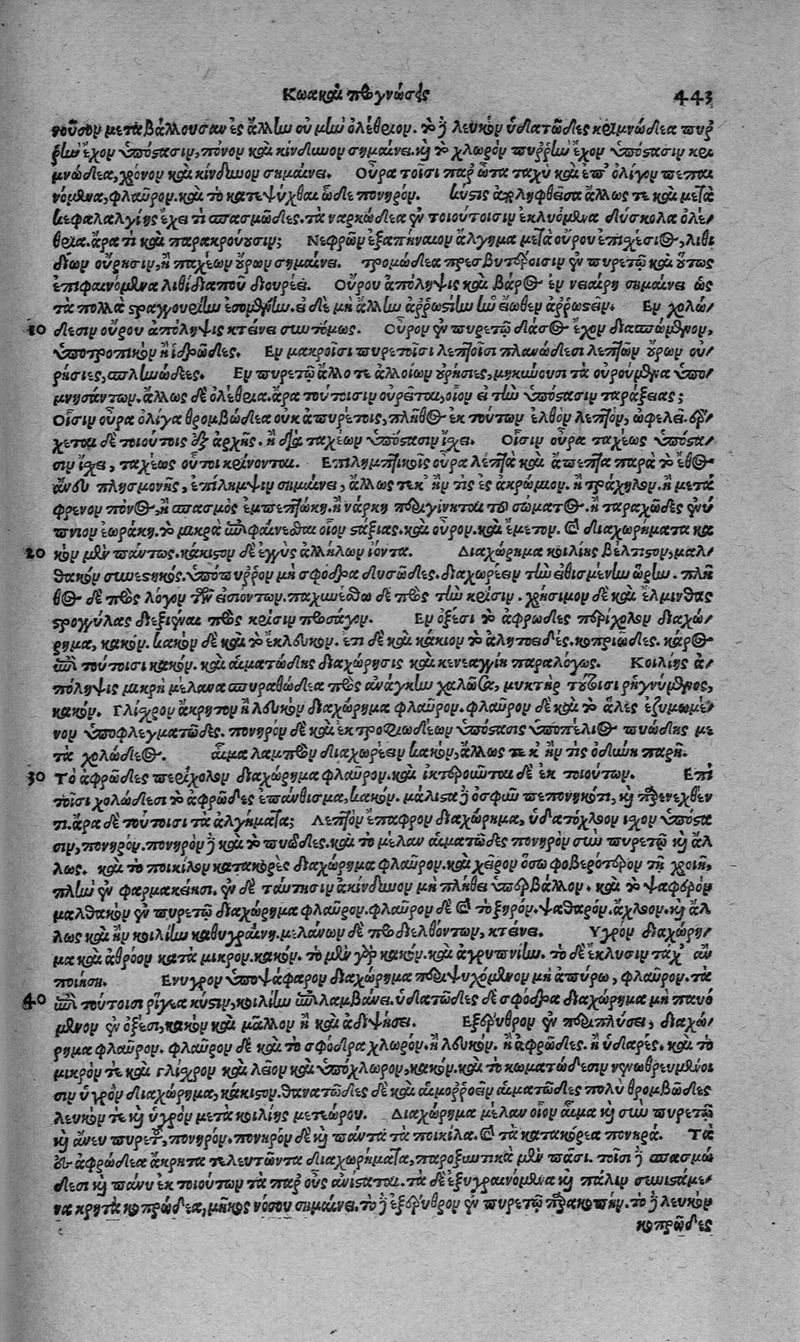 Κωακαὶ προγνώσεις 443
νοῦσον μεταβάλλουσαν ἐς ἄλλην οὐ μὴν ὀλέθριον. τὸ δὲ λευκὸν ὑδατῶδες κριμνώδεα πυρ
ρὴν ἔχον ὑπόστασιν, πόνον καὶ κίνδυνον σημαίνει. καὶ τὸ χλωρὸν πυρρὴν ἔχον ὑπόστασιν κρι
μνώδεα, χρόνον καὶ κίνδυνον σημαίνει. Οὖρα τοῖσι παρ' ὦτα ταχὺ καὶ ἐπ' ὀλίγον πεπαι
νόμενα, φλαῦρον. καὶ τὸ κατεψύχθαι ὧδε πονηρόν. κύστις ἀποληφθεῖσα ἄλλως τε καὶ μετὰ
κεφαλαλγίης ἔχει τι σπασμῶδες. τὰ ναρκώδεα ἐν τοιούτοισιν ἐκλυόμενα δύσκολα ὀλέ
θρια. ἆρά τι καὶ παρακρούσιν; Νεφρῶν ἐξαπήναιον ἄλγημα μετὰ οὔρου ἐπισχέσιος, λιθι
δίων οὔρησιν, ἢ παχέων οὔρων σημαίνει. τρομώδεα πρεσβυτέροισιν ἐν πυρετῷ καὶ οὕτως
ἐπιφαινόμενα λιθίδιά που διουρέει. Οὔρου ἀπόληψις καὶ βάρος ἐν νειαίρῃ σημαίνει ὡς
τὰ πολλὰ στραγγουρίην ἐσομένην. εἰ δὲ μὴ ἄλλην ἀῤῥωστίην ἣν εἴωθεν ἀῤῥωστεῖν. Ἐν χολώ
10 δεσιν οὔρου ἀπόληψις κτείνει συντόμως. Οὖρον ἐν πυρετῷ δίασος ἔχον διασπώμενον,
ὑποτροπικὸν ἢ ἱδρῶδες. Ἐν μακροῖσι πυρετοῖσι λεπτοῖσι πλανώδεσι λεπτῶν οὔρων οὐ
ρήσιες, σπληνώδεες. Ἐν πυρετῷ ἄλλοτε ἀλλοίων οὐρήσιες, μηκύνουσι τὰ οὐρούμενα ὑπο
μνησάντων. ἄλλως δὲ ὀλέθρια. ἆρα τούτοισιν οὐρεῖται, οἷον εἰ τὴν ὑπόστασιν ταράξειας;
Οἷσιν οὖρα ὀλίγα θρομβώδεα οὐκ ἀπυρέτοις, πλῆθος ἐκ τούτων ἐλθὸν λεπτὸν, ὠφελεῖ. ἔρ
χεται δὲ τοιούτοις ἐξ ἀρχῆς. ἢ διὰ ταχέων ὑπόστασιν ἴχει. Οἷσιν οὖρα ταχέως ὑπόστα
σιν ἴχει, ταχέως οὗτοι κρίνονται. Ἐπιλημπτικοῖς οὖρα λεπτὰ καὶ ἄπεπτα παρὰ τὸ ἔθος
ἄνευ πλησμονῆς, ἐπίλημψιν σημαίνει, ἄλλως τε κ' ἤν τις ἐς ἀκρώμιον. ἢ τράχηλον. ἢ μετά
φρενον πόνος, ἢ σπασμὸς ἐμπεπτώκῃ. ἢ νάρκη περιγίνηται τοῦ σώματος. ἢ ταραχῶδες ἐνύ
πνιον ἑωράκῃ. τὸ μικρὰ ἐπιφαίνεσθαι οἷον στάξιας. καὶ οὖρον. καὶ ἔμετον. καὶ διαχωρήματα κα
20 κὸν μὲν πάντως. κάκιστον δὲ ἐγγὺς ἀλλήλων ἰόντα. Διαχώρημα κοιλίης βέλτιστον, μαλ
θακὸν συνεστηκός. ὑπόπυῤῥον μὴ σφόδρα δυσῶδες. διαχωρέειν τὴν εἰθισμένην ὥρην. πλῆ
θος δὲ πρὸς λόγον τῶν ἐσιόντων. παχυνέσθω δὲ πρὸς τὴν κρίσιν. χρήσιμον δὲ καὶ ἕλμινθας
στρογγύλας διεξιέναι πρὸς κρίσιν προσάγον. Ἐν ὀξέσι τὸ ἀφρῶδες περίχολον διαχώ
ρημα, κακόν. κακὸν δὲ καὶ τὸ ἔκλευκον. ἔτι δὲ καὶ κάκιον τὸ ἀλητοειδές. κοπριῶδες. κάρος
ἐπὶ τούτοισι κακόν. καὶ αἱματώδης διαχώρησις καὶ κενεαγγίη παράλογος. Κοιλίης ἀ
πόληψις μικρὴ μέλανα σπυραθώδεα πρὸς ἀνάγκην χαλῶσα, μυκτὴρ τούτοισι ῥηγνύμενος,
κακόν. Γλίσχρον ἄκρητον ἢ λευκὸν διαχώρημα φλαῦρον. φλαῦρον δὲ καὶ τὸ ἅλες ἐζυμωμέ
νον ὑποφλεγματῶδες. πονηρὸν δὲ καὶ ἐκ τροφιωδέων ὑπόστασις ὑποπέλιος πυώδης με
τὰ χολώδεος. αἷμα λαμπρὸν διαχωρέειν κακὸν, ἄλλως τε κ' ἤν τις ὀδύνη παρῇ.
30 Τὸ ἀφρῶδες περίχολον διαχώρημα φλαῦρον. καὶ ἰκτεριοῦνται δὲ ἐκ τοιούτων. Ἐπὶ
τοῖσι χολώδεσι τὸ ἀφρῶδες ἐπάνθισμα, κακόν. μάλιστα δὲ ὀσφῦν πεπονηκότι, καὶ παρενεχθέν
τι. ἆρα δὲ τούτοισι τὰ ἀλγήματα; Λεπτὸν ἔπαφρον διαχώρημα, ὑδατόχλοον ἴσχον ὑπόστα
σιν, πονηρόν. πονηρὸν δὲ καὶ τὸ πυῶδες. καὶ τὸ μέλαν αἱματῶδες πονηρὸν σὺν πυρετῷ καὶ ἄλ
λως. καὶ τὸ ποικίλον κατακορὲς διαχώρημα φλαῦρον. καὶ χεῖρον ὅσῳ φοβερότερον τῇ χροιῇ,
πλὴν ἐν φαρμακείῃσι. ἐν δὲ ταύτῃσιν ἀκίνδυνον μὴ πλήθει ὑπερβάλλον. καὶ τὸ ψαφαρὸν
μαλθακὸν ἐν πυρετῷ διαχώρημα φλαῦρον. φλαῦρον δὲ καὶ τὸ ξηρὸν. ψαθαρὸν. ἄχλοον. καὶ ἄλ
λως καὶ ἢν κοιλίην καθυγραίνῃ. μελάνων δὲ προδιελθόντων, κτείνει. Ὑγρὸν διαχώρη
μα καὶ ἀθρόον κατὰ μικρὸν. κακόν. τὸ μὲν γὰρ κακὸν. καὶ ἀγρυπνίην. τὸ δὲ ἔκλυσιν τάχ' ἂν
ποιήσῃ. Ἔνυγρον ὑποψάφαρον διαχώρημα περιψυχόμενον μὴ ἀπύρῳ, φλαῦρον. τὰ
40 ἐπὶ τούτοισι ῥίγεα κύστιν, κοιλίην ἐπιλαμβάνει. ὑδατῶδες δὲ σφόδρα διαχώρημα μὴ παυό
μενον ἐν ὀξέσι, κακὸν καὶ μᾶλλον ἢ καὶ ἀδιψήσει. Ἐξέρυθρον ἐν περιπλύσει, διαχώ
ρημα φλαῦρον. φλαῦρον δὲ καὶ τὸ σφόδρα χλωρὸν. ἢ λευκὸν. ἢ ἀφρῶδες. ἢ ὑδαρές. καὶ τὸ
μικρόν τε καὶ γλίσχρον καὶ λεῖον καὶ ὑπόχλωρον, κακὸν. καὶ τὸ κωματώδεσιν νενωθρευμένοι
σιν ὑγρὸν διαχώρημα, κάκιστον. θανατῶδες δὲ καὶ αἱμορροεῖν αἱματῶδες πολὺ θρομβῶδες
λευκόν τε καὶ ὑγρὸν μετὰ κοιλίης μετεώρου. Διαχώρημα μέλαν οἷον αἷμα καὶ σὺν πυρετῷ
καὶ ἄνευ πυρετοῦ, πονηρόν. πονηρὸν δὲ καὶ πάντα τὰ ποικίλα. καὶ τὰ κατακόρεα πονηρά. Τὰ
ἐς ἀφρώδεα ἄκρητα τελευτῶντα διαχωρήματα, παροξυντικὰ μὲν πᾶσι. τοῖσι δὲ σπασμώ
δεσι καὶ πάνυ ἐκ τοιούτων τὰ παρ' οὖς ἀνίσταται. τὰ δὲ ἐξυγραινόμενα καὶ πάλιν συνιστάμε
να κρητὰ κοπρώδεα, μῆκος νόσου σημαίνει. τὸ δὲ ἐξέρυθρον ἐν πυρετῷ παρακοπήν. τὸ δὲ λευκὸν
κοπρῶδες